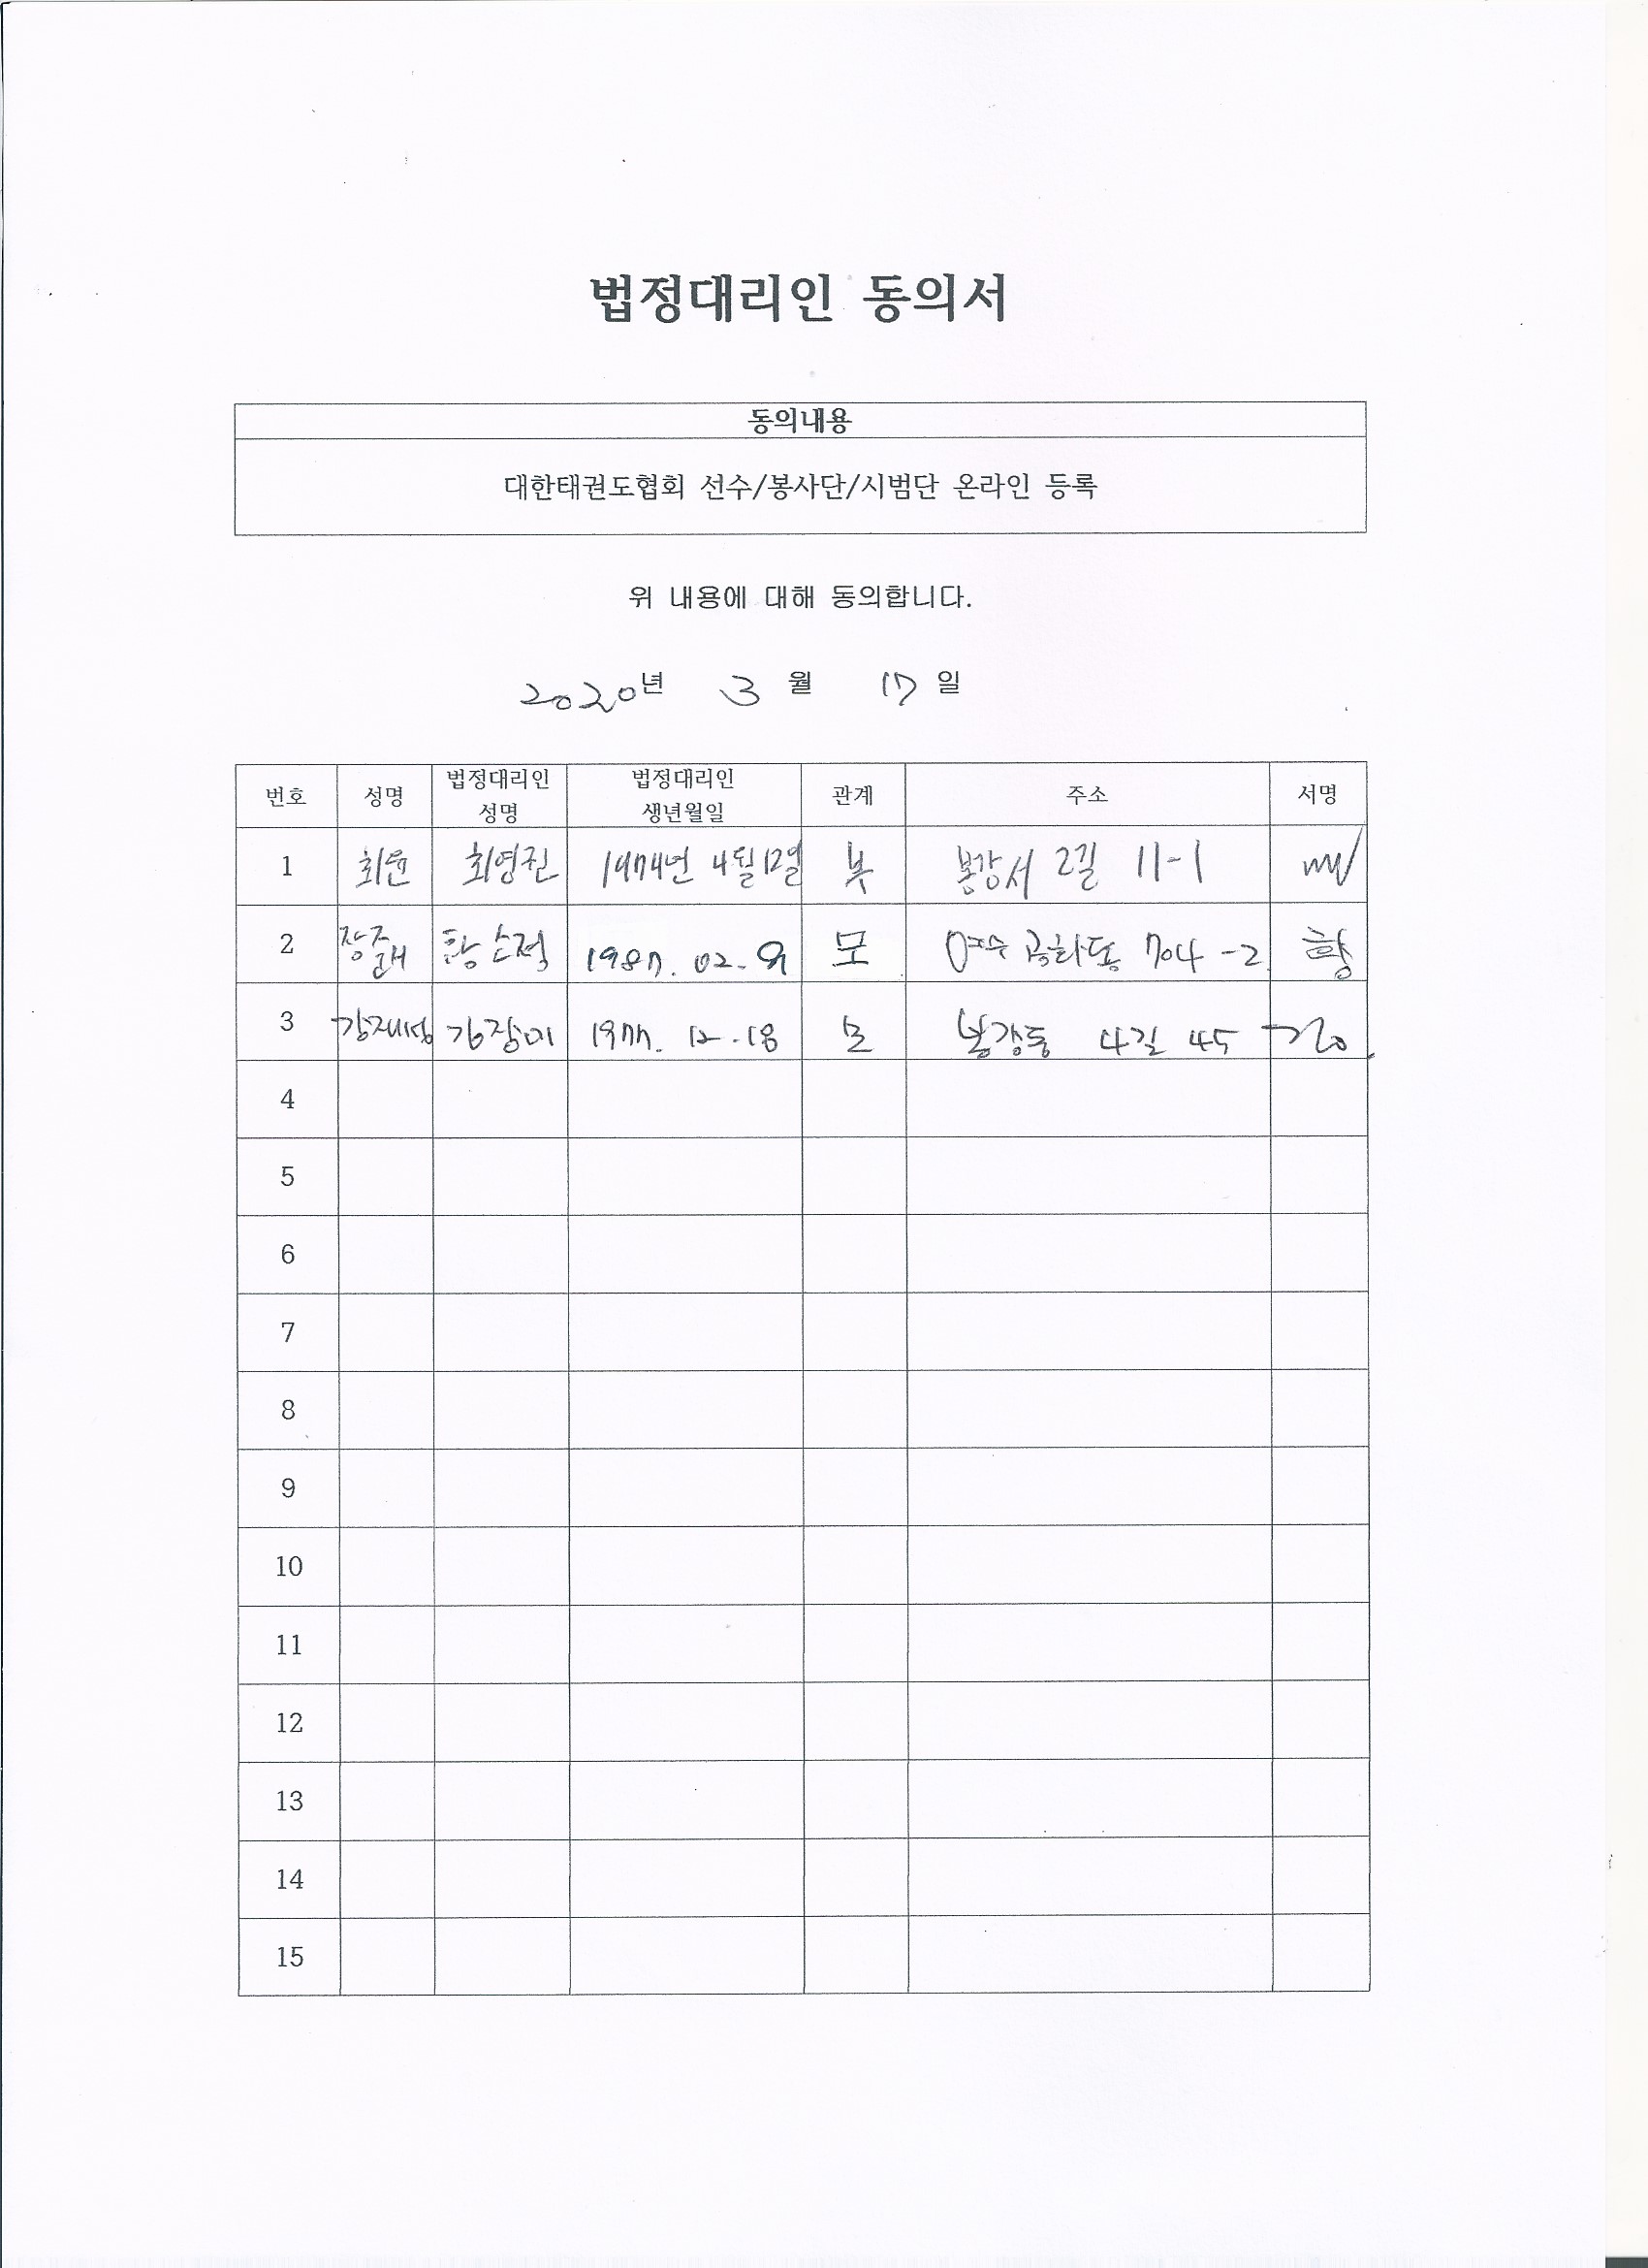 법정대리인 동의서
동의내용
대한태권도협회 선수/봉사단/시범단 온라인 등록
위 내용에 대해 동의합니다.
2020년 3월 17일
번호 성명 법정대리인 성명 법정대리인 생년월일 관계 주소 서명
1 최윤 최영진 1974년 4월 12일 부 봉강서 2길 11-1
2 장준래 황순정 1987. 02. 9 모 여수 공화동 704-2 황
3 강재성 강장미 1977. 12. 18 모 봉강동 4길 45
4
5
6
7
8
9
10
11
12
13
14
15